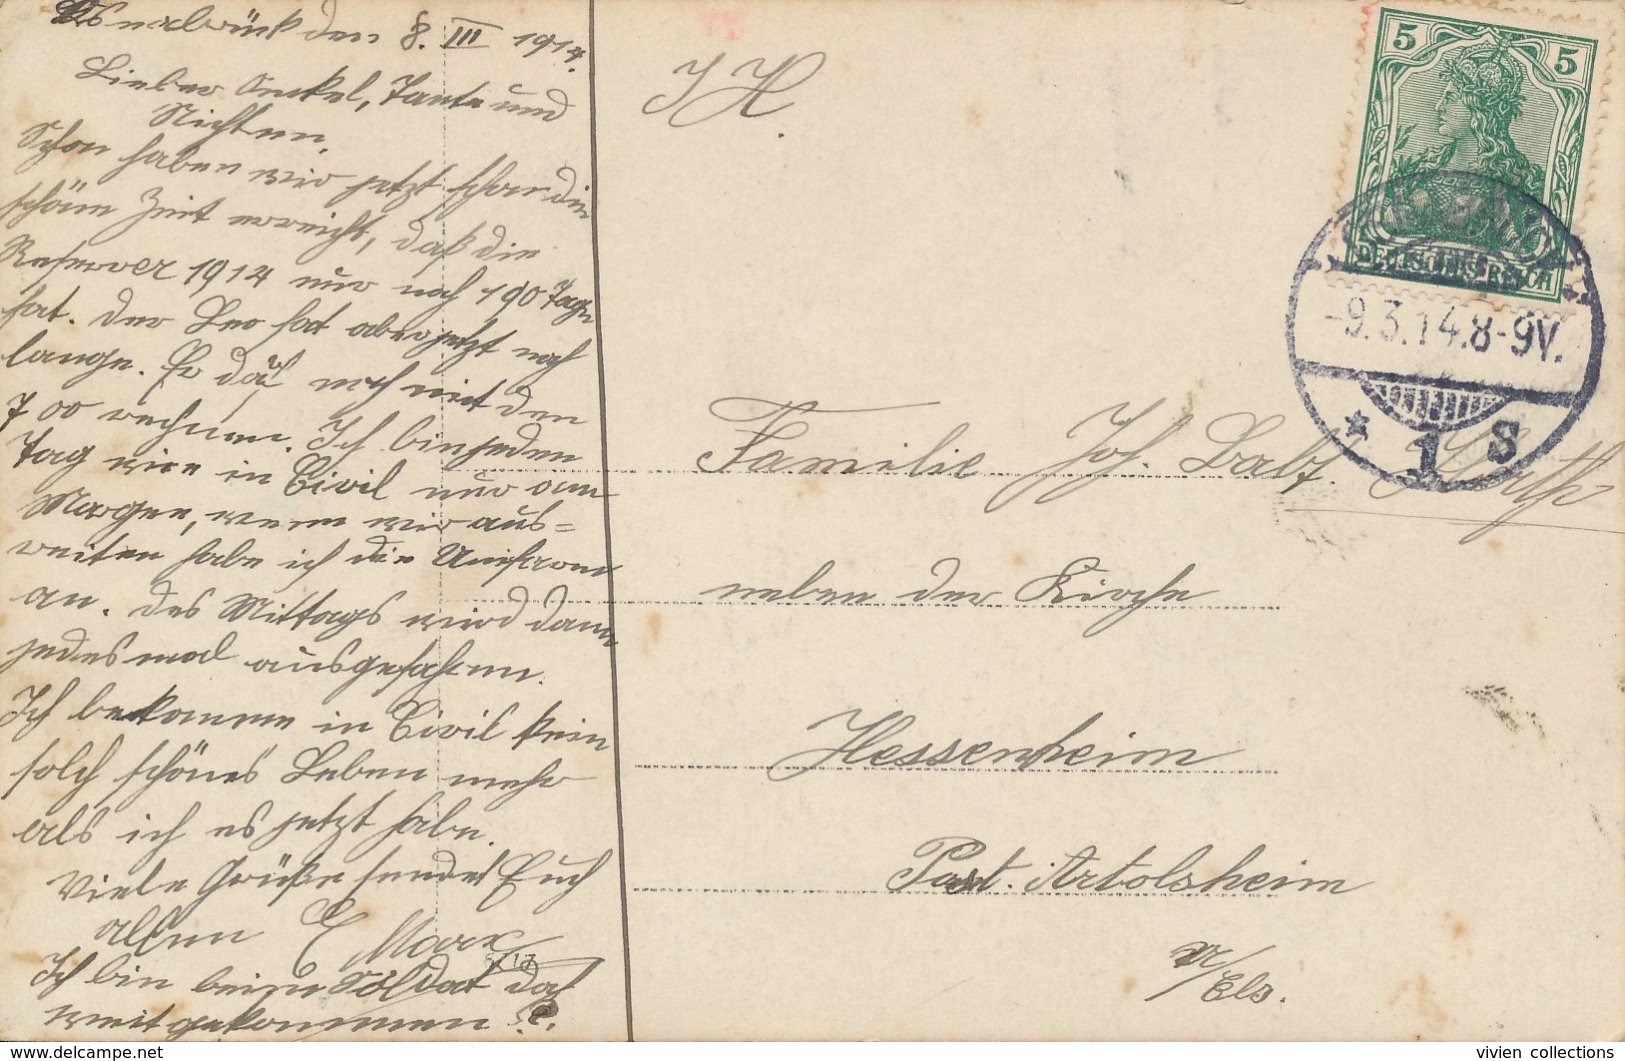 Osnabrück den 8. III 1914.
Lieber Onkel, Tante und
Nichten.
Schon haben wir jetzt schon die
schöne Zeit erreicht, daß die
Reserver 1914 nur noch 190 Tage
hat. Der Leo hat aber jetzt noch
lange. Er noch mit den
700 rechnen. Ich bin jeden
Tag wie in Civil nur am
Morgen, wenn wir aus-
reiten habe ich die Uniform
an. Des Mittags wird dann
jedesmal ausgefahren.
Ich bekomme in Civil kein
solch schönes Leben mehr
als ich es jetzt habe.
Viele Grüße sendet Euch
allen E Marx
Ich bin beim Soldat doch
weit gekommen ?.
J H.
5 5
DEUTSCHES REICH
-9.3.14.8-9V.
* 1 S
Familie Joh. Balt.
neben der Kirche
Hessenheim
Post. Artolsheim
U/Els.
vivien collections